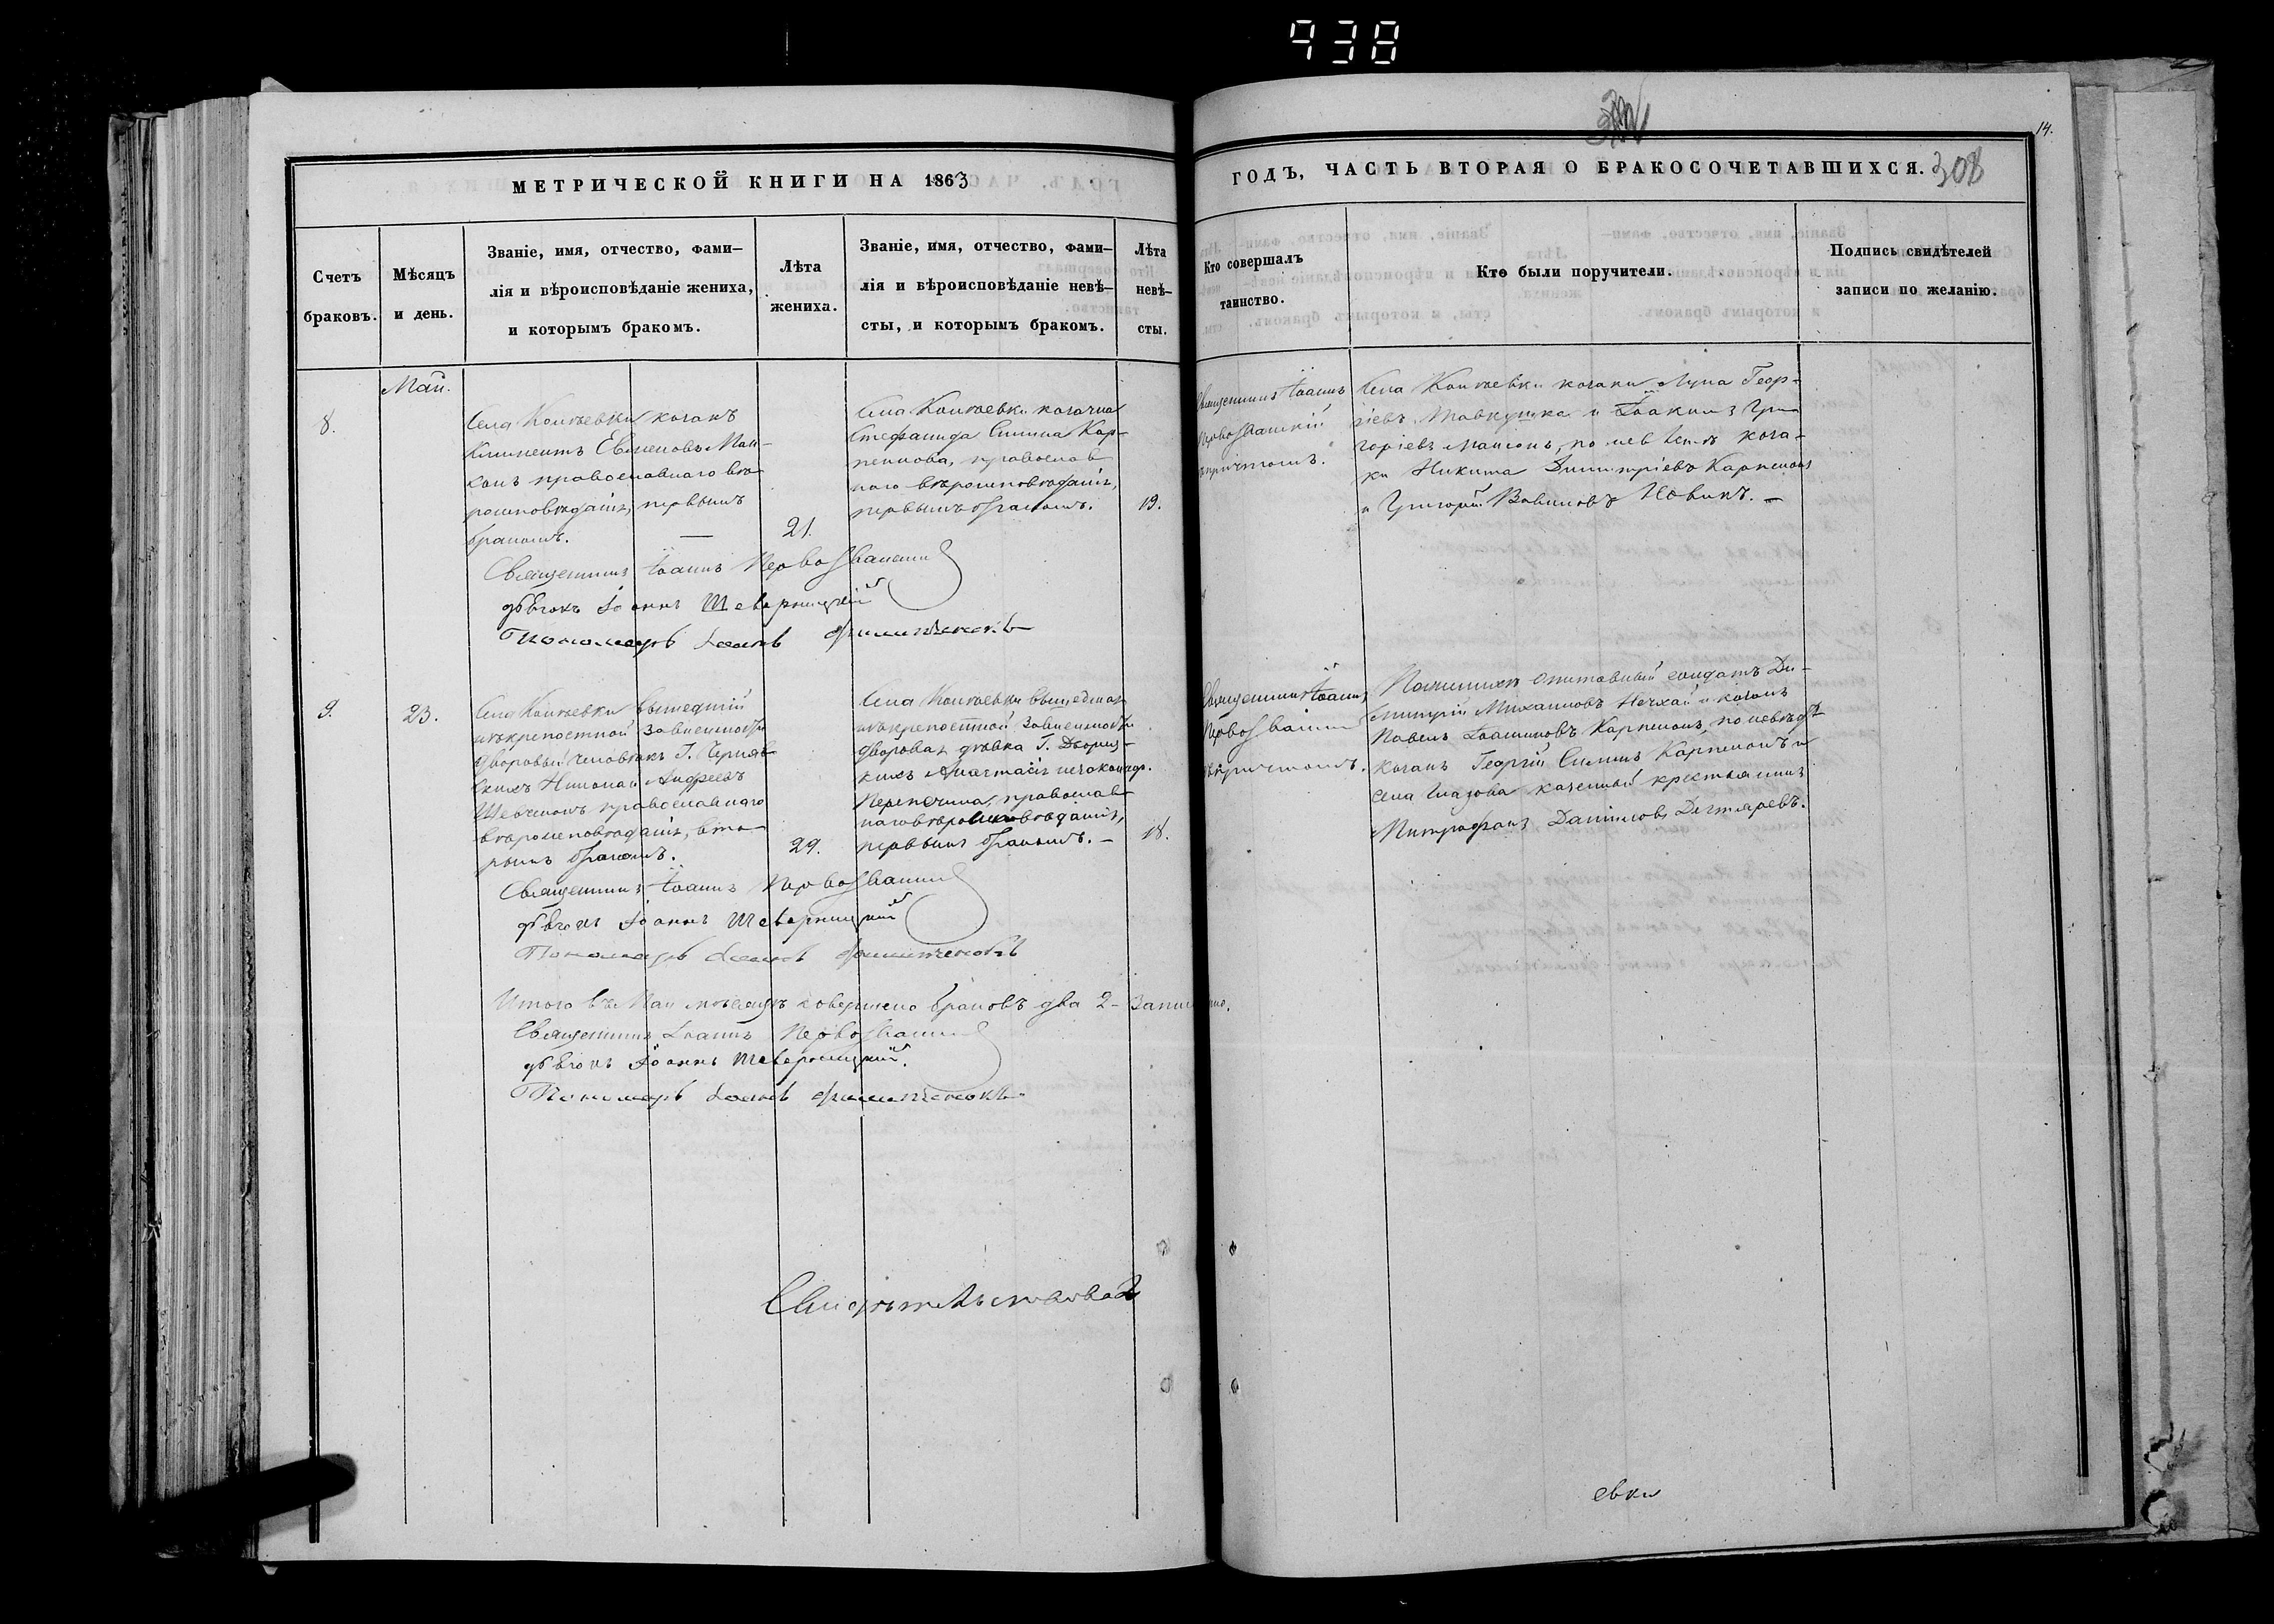 938
14.
МЕТРИЧЕСКОЙ КНИГИ НА 1863
ГОДЪ, ЧАСТЬ ВТОРАЯ О БРАКОСОЧЕТАВШИХСЯ. 308
Счетъ
браковъ.
Мѣсяцъ
и день.
Званіе, имя, отчество, фами-
лія и вѣроисповѣданіе жениха,
и которымъ бракомъ.
Лѣта
жениха.
Званіе, имя, отчество, фами-
лія и вѣроисповѣданіе невѣ-
сты, и которымъ бракомъ.
Лѣта
невѣ-
сты.
Кто совершалъ
таинство.
Кто были поручители.
Подпись свидѣтелей
записи по желанію.
Май.
8.
Села козакъ
Климентъ
православнаго вѣ-
роисповѣданія, первымъ
бракомъ. —
21.
Села козачка
Стефанида Силина Кар-
пенкова, православ
наго вѣроисповѣданія,
первымъ бракомъ.
19.
Священникъ Іоаннъ
Первозванскій
съ причтомъ.
Села козаки Лука Геор-
гіевъ и Іоакимъ Гри
горіевъ по невѣстѣ коза-
ки Никита Димитріевъ Карпенко
и Григорій Вавиловъ Новикъ. —
Священникъ Іоаннъ Первозванскій
дьячокъ Іоаннъ Шеверницкій
Пономарь
9.
23.
Села вышедшій
изъ крѣпостной зависимости
дворовый человѣкъ Г. Черняв
скихъ Николай Андреевъ
Шевченко православнаго
вѣроисповѣданія, вто-
рымъ бракомъ.
29.
Села вышедшая
изъ крѣпостной зависимости
дворовая дѣвка Г.
Анастасія
православ
наго вѣроисповѣданія,
первымъ бракомъ. —
18.
Священникъ Іоаннъ
Первозванскій
съ причтомъ.
По женихѣ отставный солдатъ Ди-
митрій Михайловъ Нечхай и козакъ
Павелъ Іоакимовъ Карпенко, по невѣстѣ
козакъ Георгій Силинъ Карпенко и
села казенный крестьянинъ
Митрофанъ Даниловъ Дегтяревъ.
Священникъ Іоаннъ Первозванскій
дьячокъ Іоаннъ Шеверницкій
Пономарь
Итого въ Маѣ мѣсяцѣ совершено браковъ два 2-
Священникъ Іоаннъ Первозванскій
дьячокъ Іоаннъ Шеверницкій.
Пономарь
Свидѣтельствовал
евки